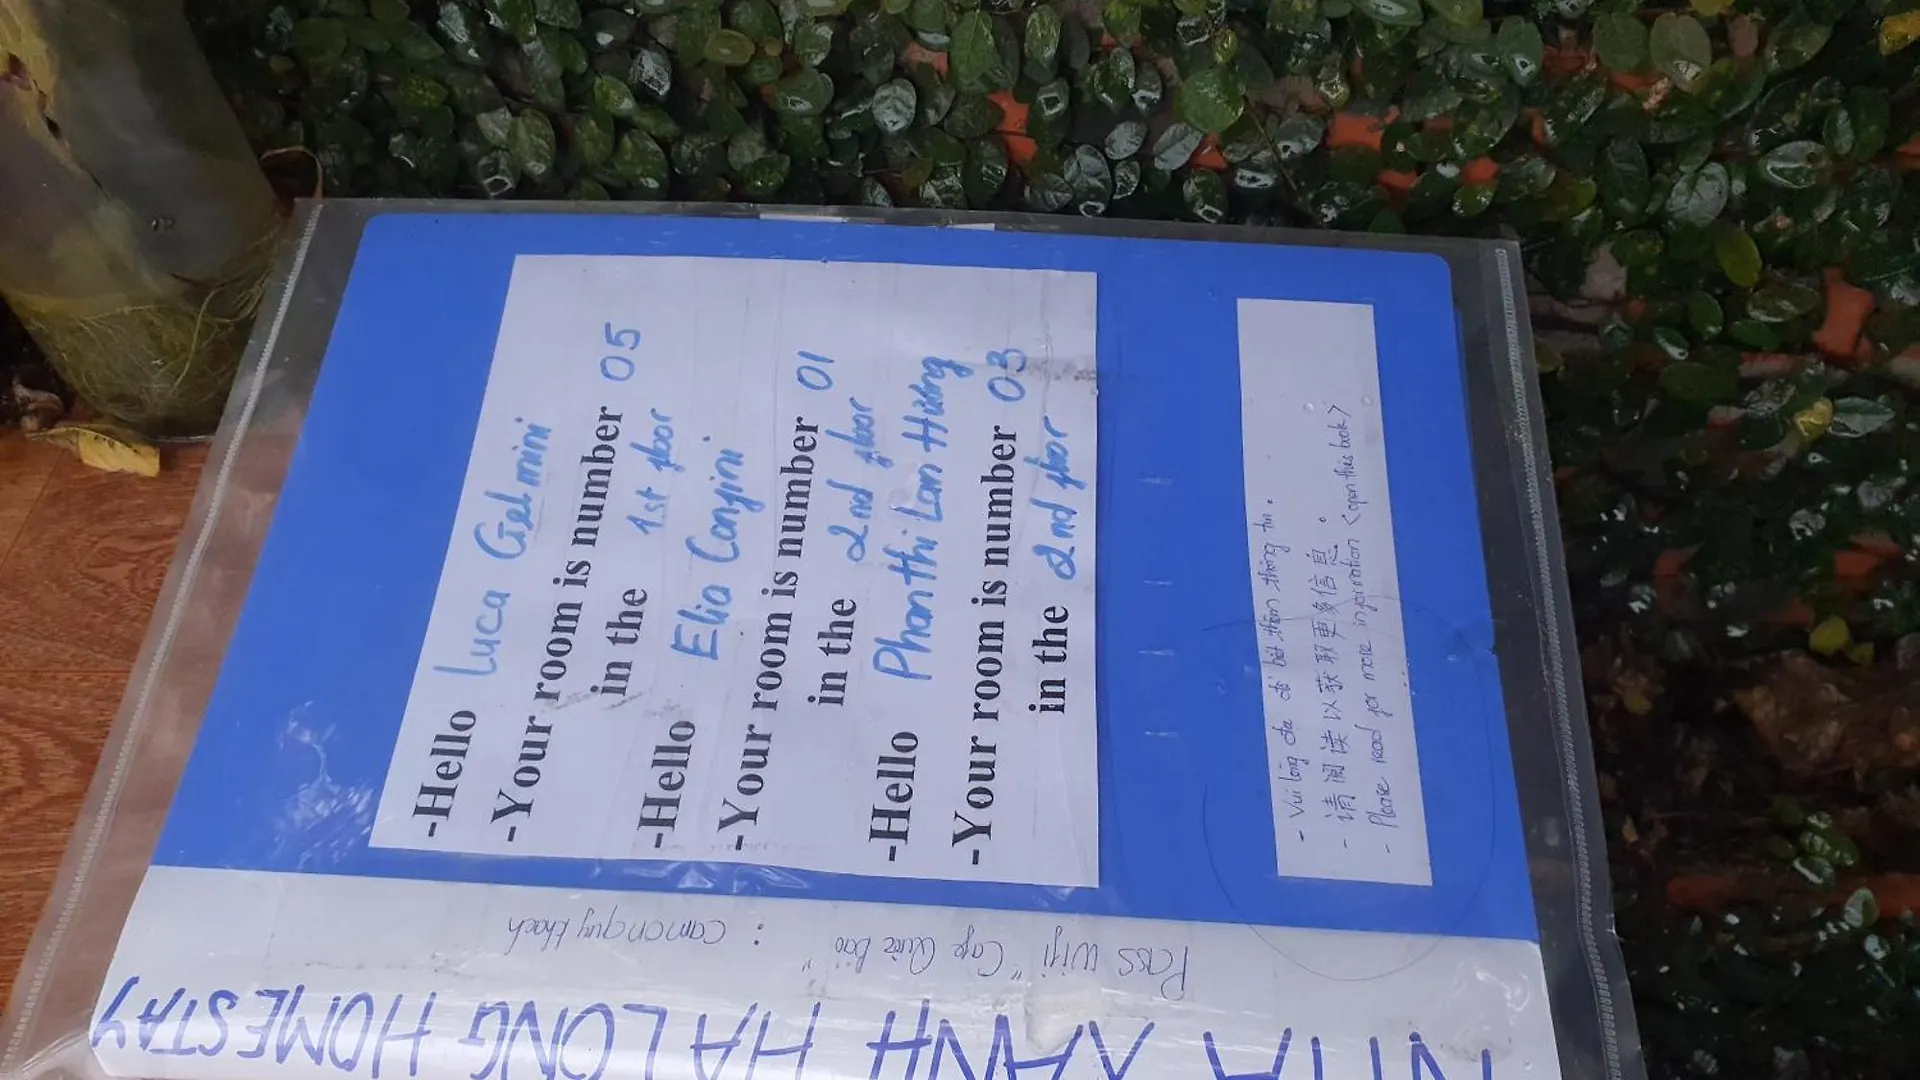 -Hello Luca Gelmini
-Your room is number 05
in the 1st floor
-Hello Elia Congini
-Your room is number 01
in the 2nd floor
-Hello Phan Thi Lan Hương
-Your room is number 03
in the 2nd floor
- Vui lòng để biết thêm thông tin.
- 请阅读以获取更多信息。
- Please read for more information <open this book>
Pass wifi "Cafe Quốc Bảo" : camonquykhach
XANH HA LONG HOMESTAY